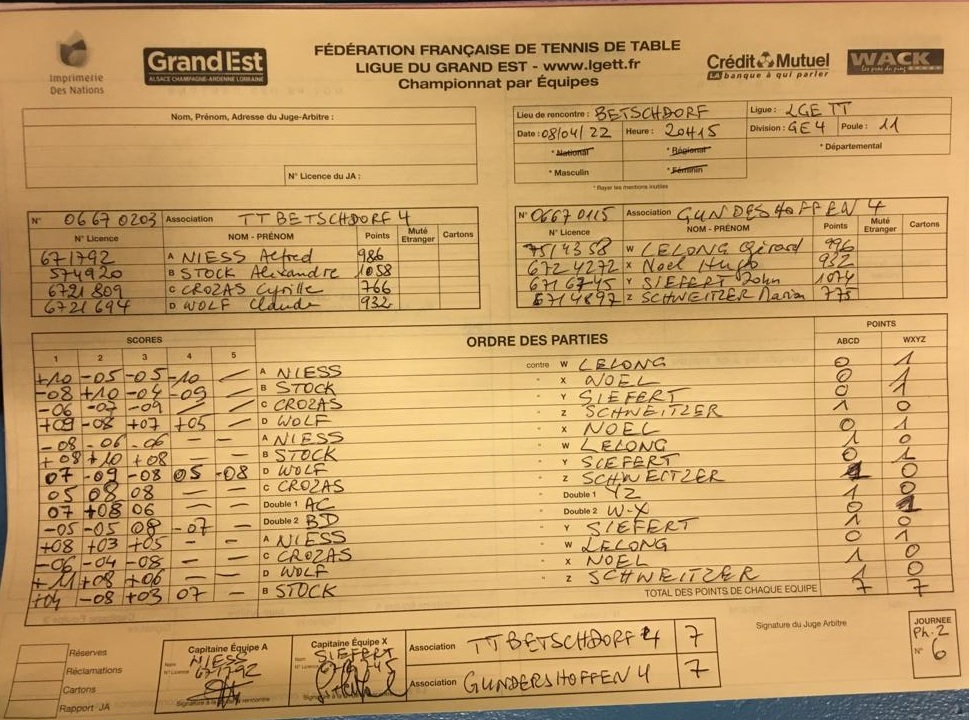 Imprimerie
Des Nations
Grand Est
ALSACE CHAMPAGNE-ARDENNE LORRAINE
FÉDÉRATION FRANÇAISE DE TENNIS DE TABLE
LIGUE DU GRAND EST - www.lgett.fr
Championnat par Équipes
Crédit Mutuel
LA banque à qui parler
WACK
Nom, Prénom, Adresse du Juge-Arbitre :
N° Licence du JA :
Lieu de rencontre : BETSCHDORF Ligue : LGETT
Date : 08/04/22 Heure : 20H15 Division : GE4 Poule : 11
* National * Régional * Départemental
* Masculin * Féminin
* Rayer les mentions inutiles
N° 0667 0203 Association TT BETSCHDORF 4
N° Licence NOM - PRÉNOM Points Muté Etranger Cartons
671792 A NIESS Alfred 986
574920 B STOCK Alexandre 1058
6721809 C CROZAS Cyrille 766
6721694 D WOLF Claude 932
N° 0667 0115 Association GUNDESHOFFEN 4
N° Licence NOM - PRÉNOM Points Muté Etranger Cartons
W LELONG Gérard 996
6724272 X Noel Hugo 932
6716745 Y SIEFERT John 1074
6714897 Z SCHWEITZER 775
SCORES ORDRE DES PARTIES POINTS
1 2 3 4 5 ABCD WXYZ
+10 -05 -05 -10 — A NIESS contre W LELONG 0 1
-08 +10 -04 -09 — B STOCK " X NOEL 0 1
-06 -07 -09 — — C CROZAS " Y SIEFERT 0 1
+09 -08 +07 +05 — D WOLF " Z SCHWEITZER 1 0
-08 -06 -06 — — A NIESS " X NOEL 0 1
+08 +10 +08 — — B STOCK " W LELONG 1 0
07 -09 -08 05 -08 D WOLF " Y SIEFERT 0 1
05 08 08 — — C CROZAS " Z SCHWEITZER 1 0
07 +08 06 — — Double 1 AC " Double 1 YZ 1 0
-05 -05 08 -07 — Double 2 BD " Double 2 W-X 0 1
+08 +03 +05 - - A NIESS " Y SIEFERT 1 0
-06 -04 -08 — — C CROZAS " W LELONG 0 1
+11 +08 +06 — — D WOLF " X NOEL 1 0
+04 -08 +03 07 - B STOCK " Z SCHWEITZER 1 0
TOTAL DES POINTS DE CHAQUE EQUIPE 7 7
Réserves
Réclamations
Cartons
Rapport JA
Capitaine Équipe A
Nom NIESS
N° Licence 671792
Capitaine Équipe X
Nom SIEFERT
N° Licence 6716745
Association TT BETSCHDORF 4 7
Association GUNDERSHOFFEN 4 7
Signature du Juge Arbitre
JOURNEE
Ph.2
N° 6